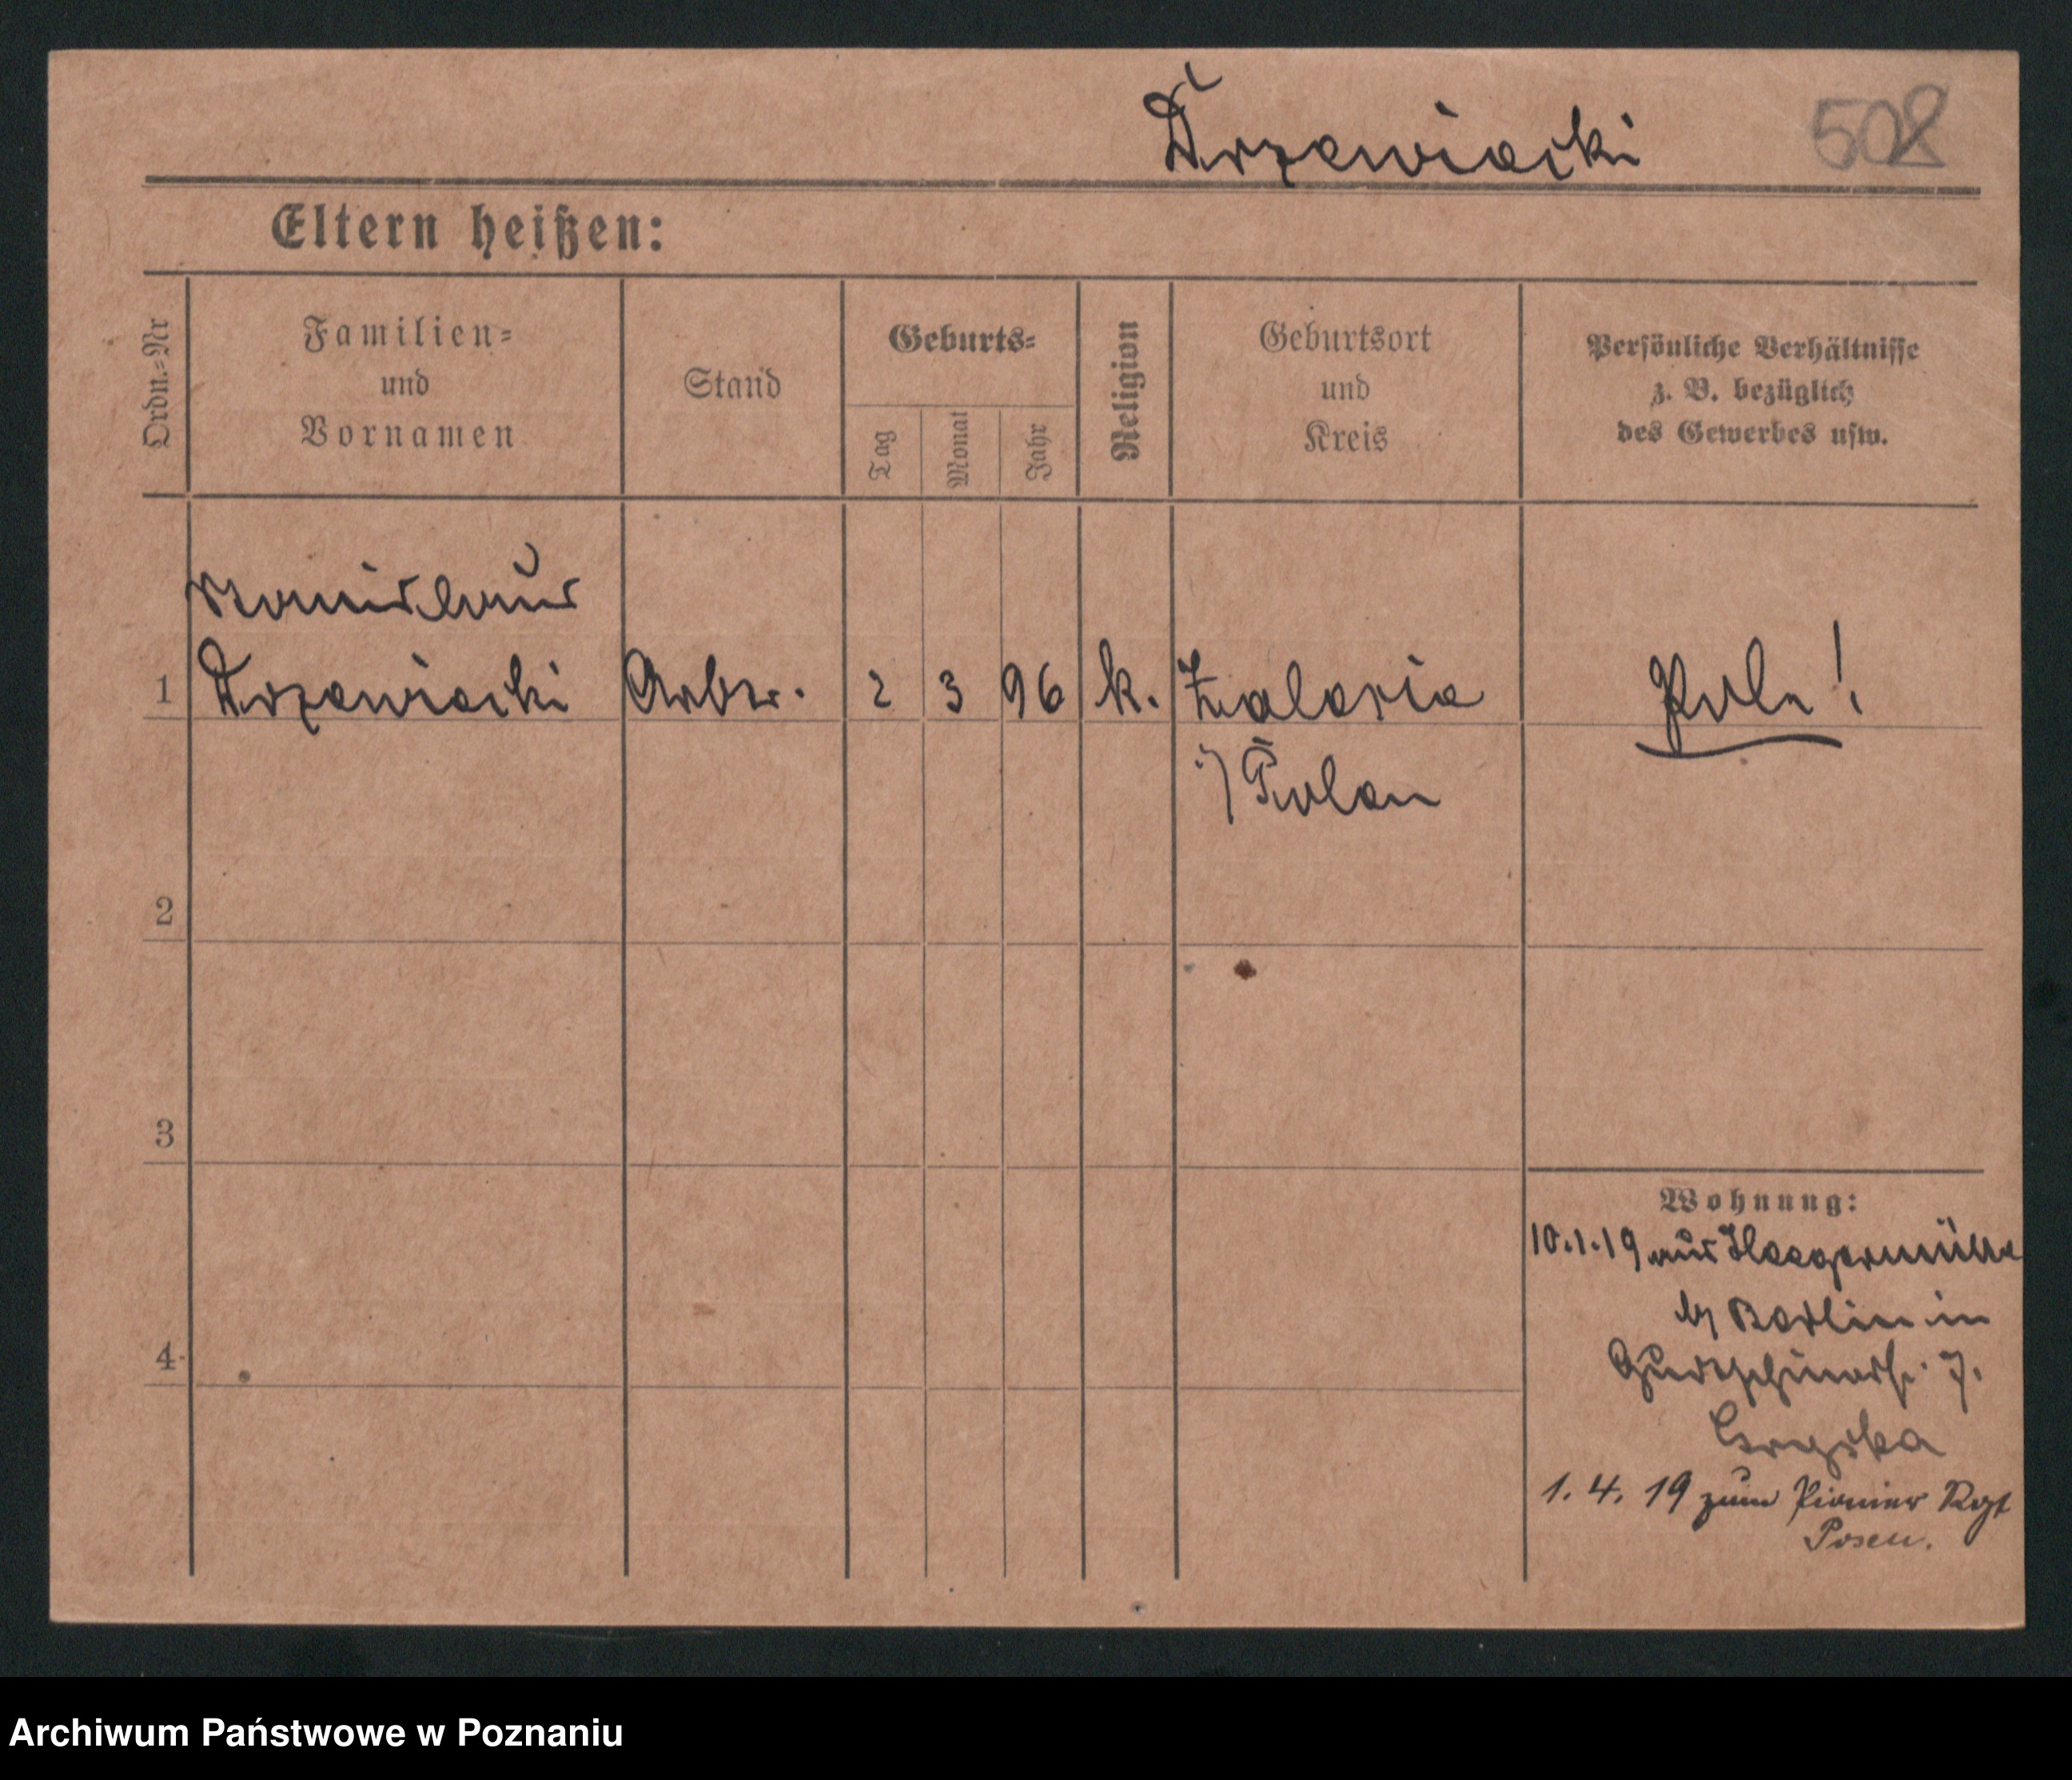 Drzewiecki
502
Eltern heißen:
Ordn.-Nr
Familien-
und
Vornamen
Stand
Geburts-
Tag
Monat
Jahr
Religion
Geburtsort
und
Kreis
Persönliche Verhältnisse
z. B. bezüglich
des Gewerbes usw.
1 Drzewiecki Arbtr. 2 3 96 k. Pole!
i/ Polen
2
3
4
Wohnung:
10.1.19 aus Heegermühle
b/ Berlin in
7.
1. 4. 19 zum Pionier Rgt
Posen.
Archiwum Państwowe w Poznaniu